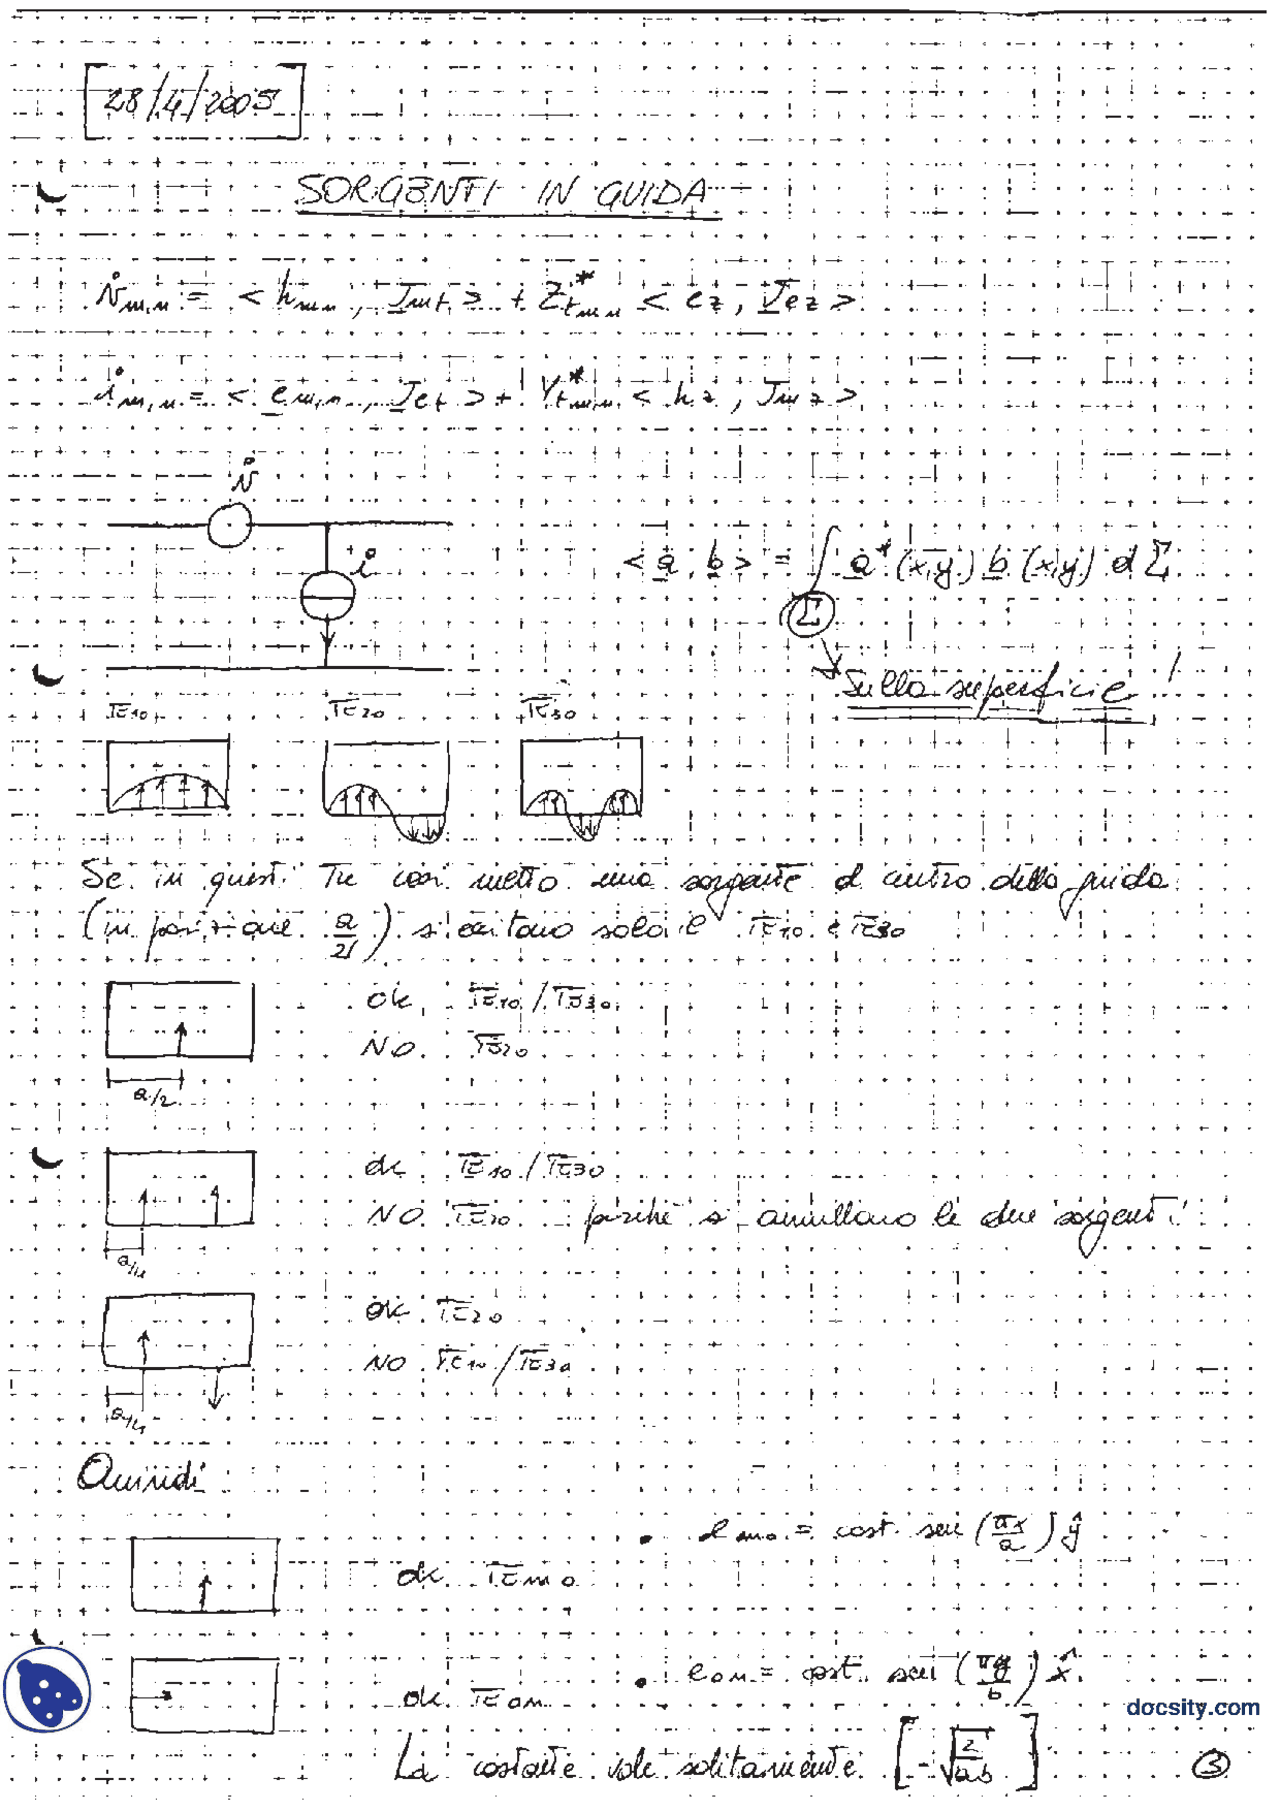 28/4/2005
SORGENTI IN GUIDA
v̊m,n = < hmn , Jmt > + Z*tmn < ez , Jez >
i̊m,n = < em,n , Jet > + Y*tmn < hz , Jmz >
v̊
i̊
< a, b > = ∫Σ a*(x,y) b(x,y) dΣ
sulla superficie!
TE10 TE20 TE30
Se in questi tre casi metto una sorgente al centro della guida
(in posizione a/2) si eccitano solo il TE10 e TE30
ok TE10/TE30
NO TE20
a/2
ok TE10/TE30
NO TE20 perchè si annullano le due sorgenti!
a/4
ok TE20
NO TE10/TE30
a/4
Quindi
• em0 = cost. sen (πx/a) ŷ
ok TEm0
• e0n = cost. sen (πy/b) x̂
ok TE0n
docsity.com
La costante vale solitamente [-√2/ab]
3